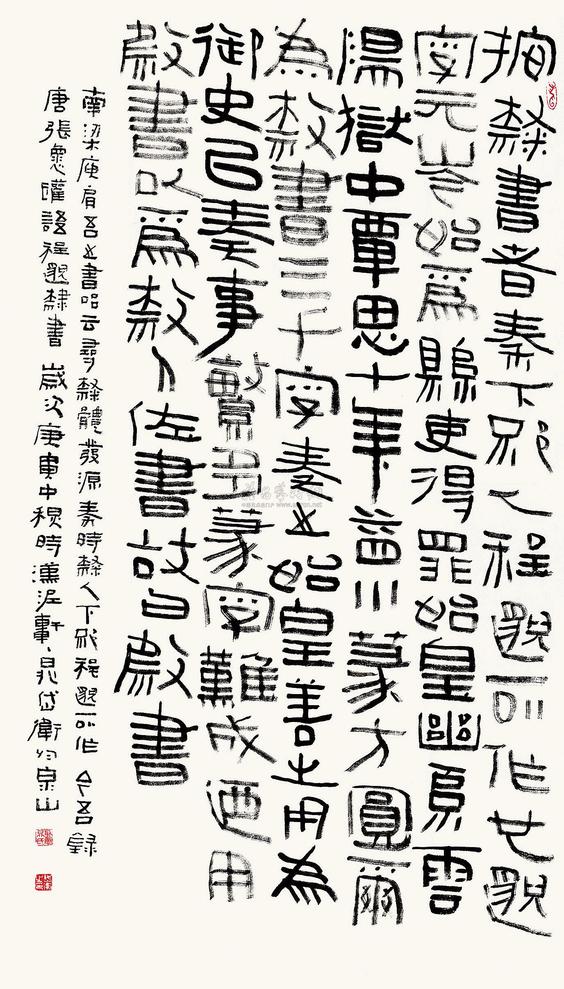 按隸書者秦下邽人程邈所作也邈
字元岑始為縣吏得罪始皇幽系雲
陽獄中覃思十年益小篆方圓爾
為隸書三千字奏之始皇善之用為
御史以奏事繁多篆字難成迺用
隸書以為隸人佐書故曰隸書
南梁庾肩吾之書品云尋隸體發源秦時隸人下邽程邈所作 今吾錄
唐張懷瓘語程邈隸書 歲次庚寅中秋時漢泥軒、晁岱衛於泉山